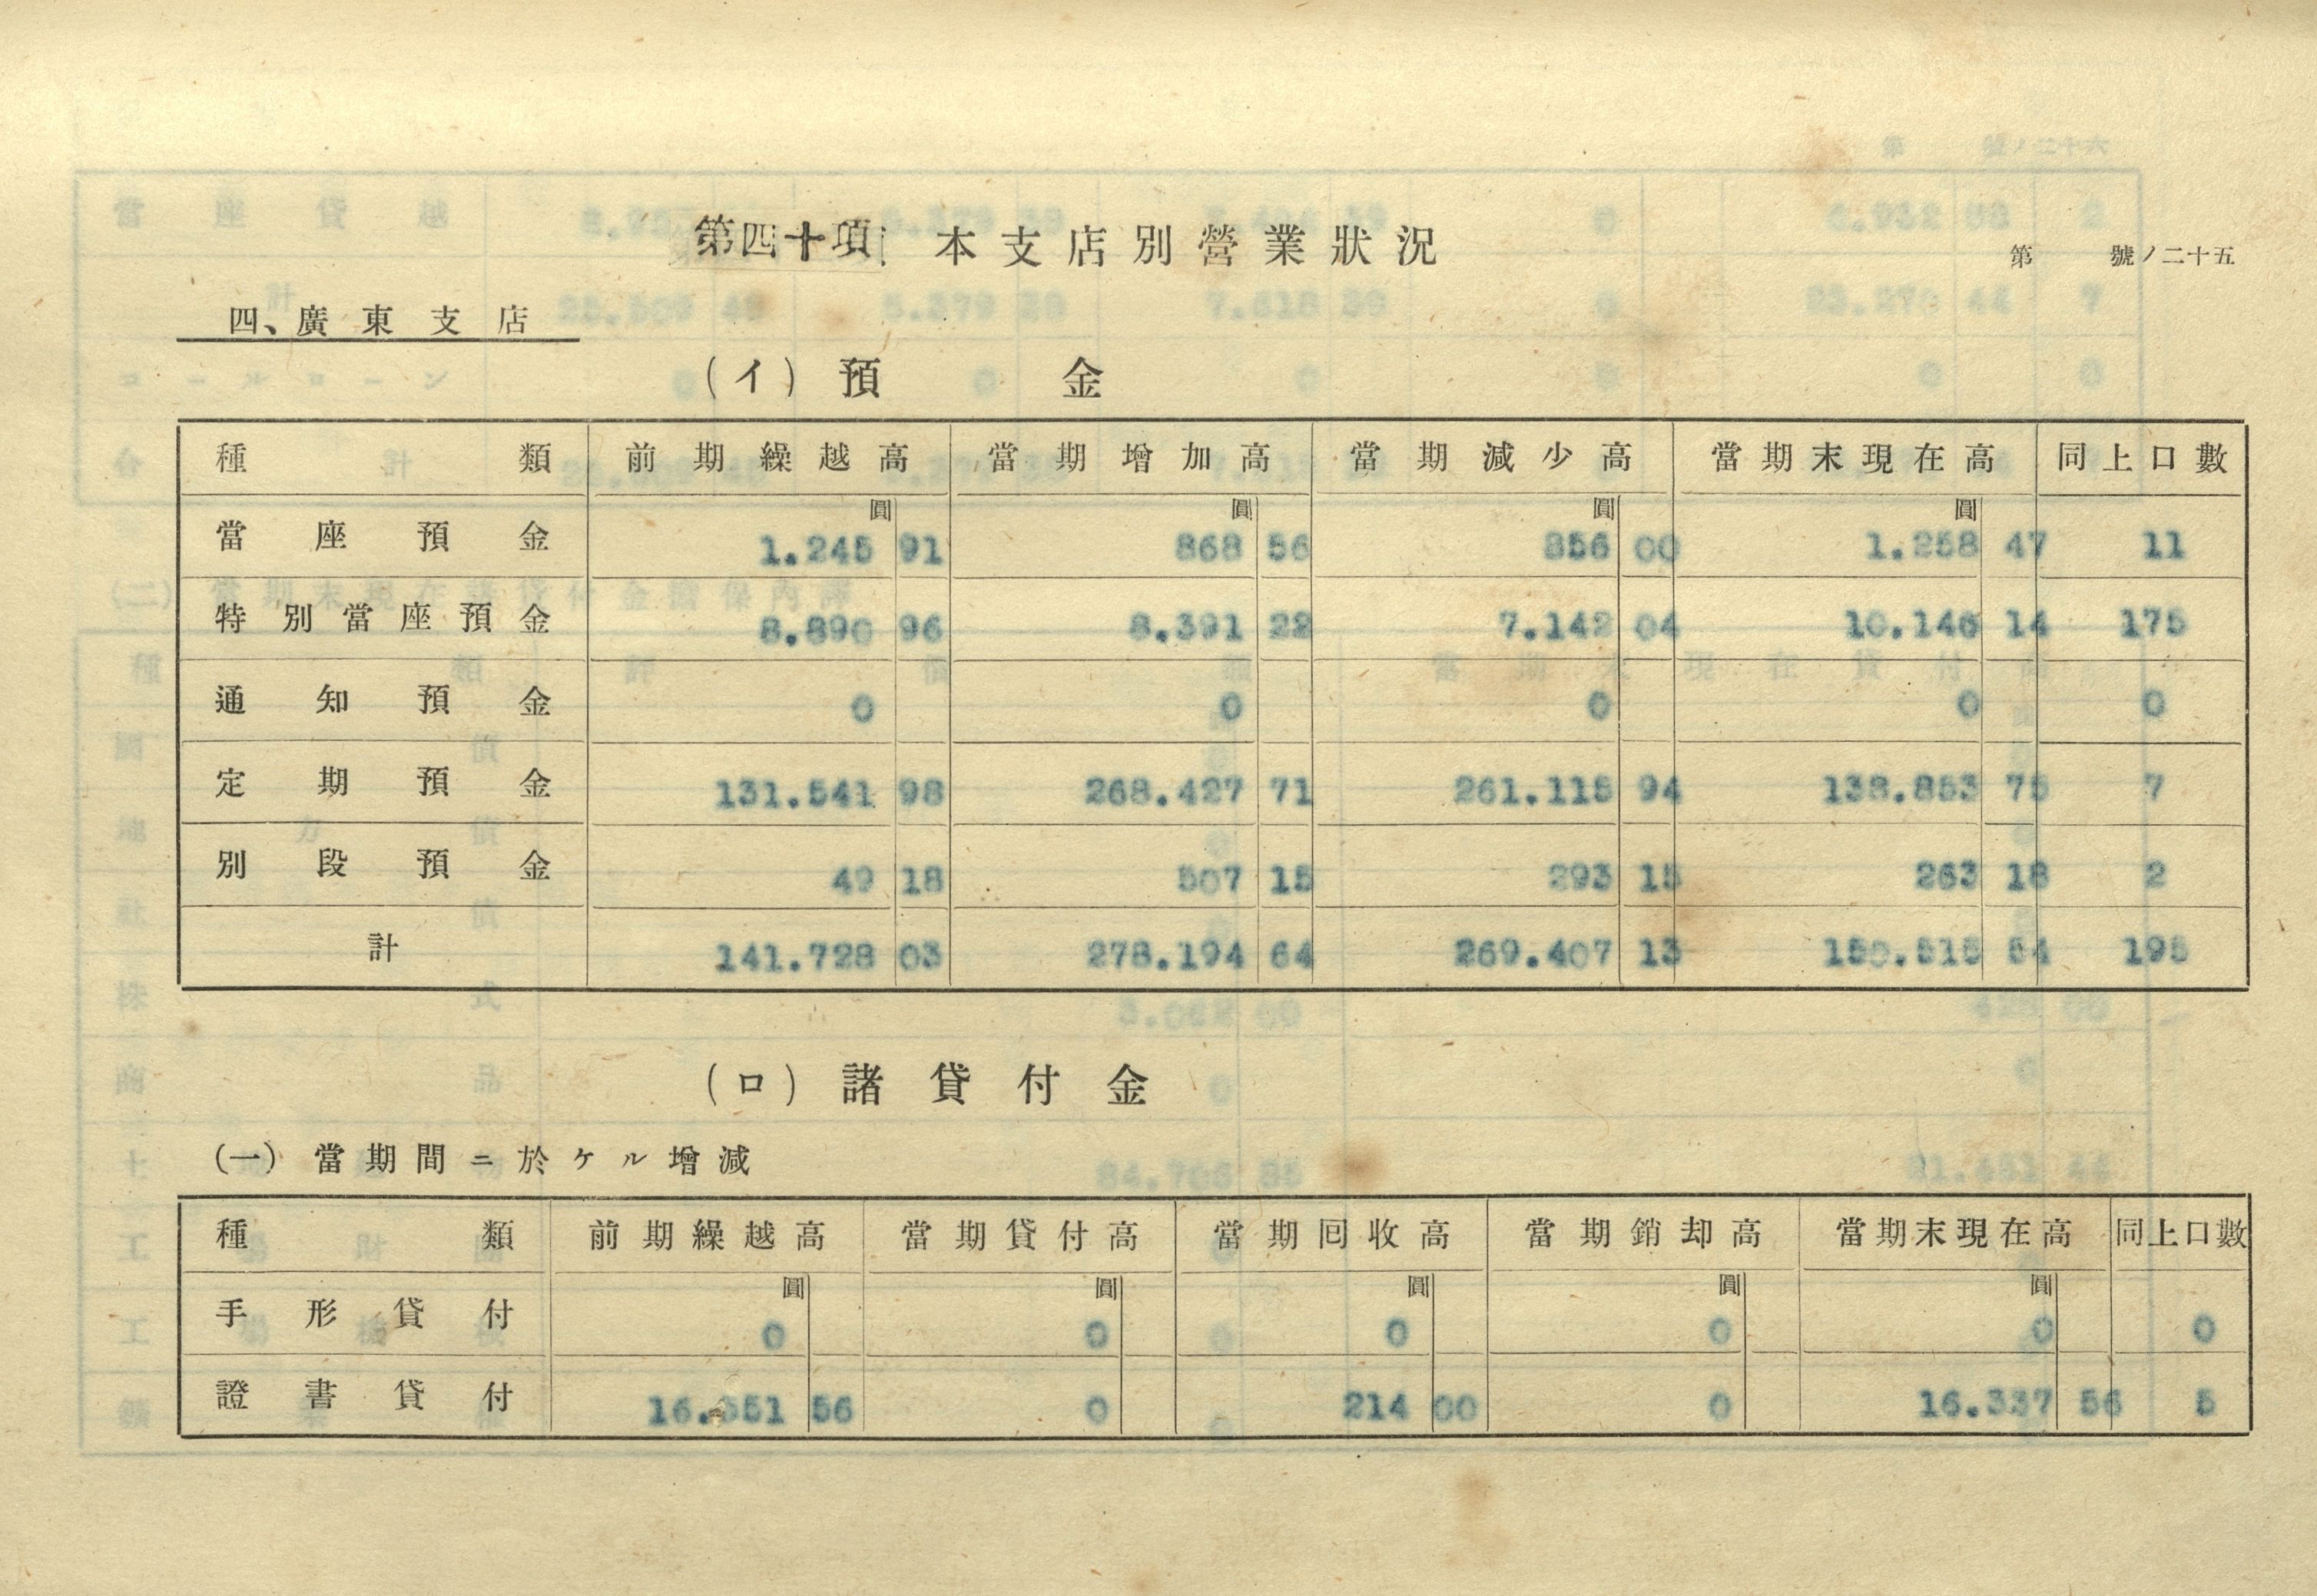 第四十項 本支店別營業狀況
第 號ノ二十五
四、廣東支店
(イ) 預金
種類 前期繰越高 當期增加高 當期減少高 當期末現在高 同上口數
圓 圓 圓 圓
當座預金 1.245 91 868 56 856 00 1.258 47 11
特別當座預金 8.890 96 8.391 22 7.142 04 10.140 14 175
通知預金 0 0 0 0 0
定期預金 131.541 98 268.427 71 261.115 94 138.853 75 7
別段預金 49 18 507 15 293 15 263 18 2
計 141.728 03 278.194 64 269.407 13 150.515 54 195
(ロ) 諸貸付金
(一) 當期間ニ於ケル增減
種類 前期繰越高 當期貸付高 當期囘收高 當期銷却高 當期末現在高 同上口數
圓 圓 圓 圓 圓
手形貸付 0 0 0 0 0 0
證書貸付 16.551 56 0 214 00 0 16.337 56 5